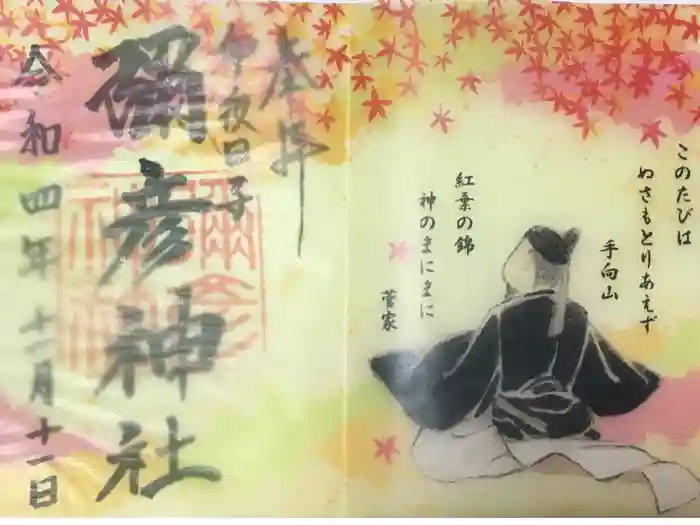 このたびは
ぬさもとりあえず
手向山
紅葉の錦
神のまにまに
菅家
奉拝
彌彦神社
令和四年十一月十一日